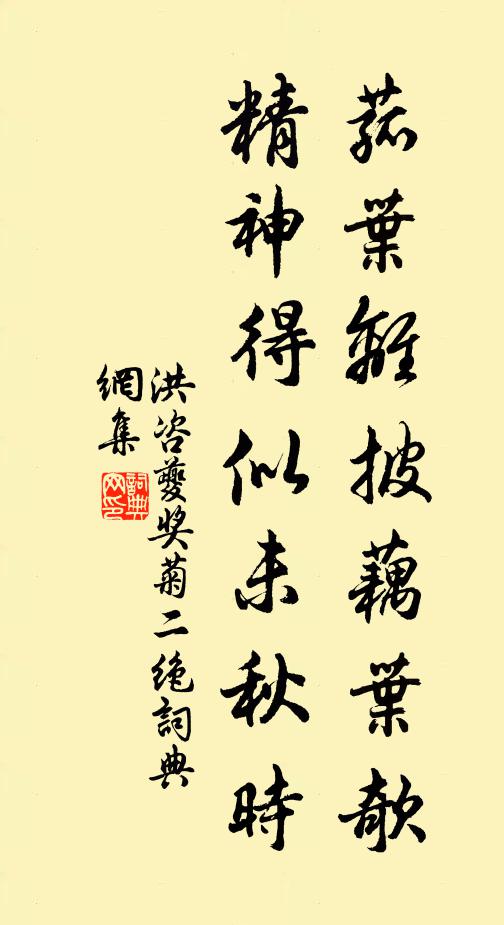 菰葉離披藕葉欹
精神得似未秋時
洪咨夔奖菊二绝詞典
網集
詞典
网印